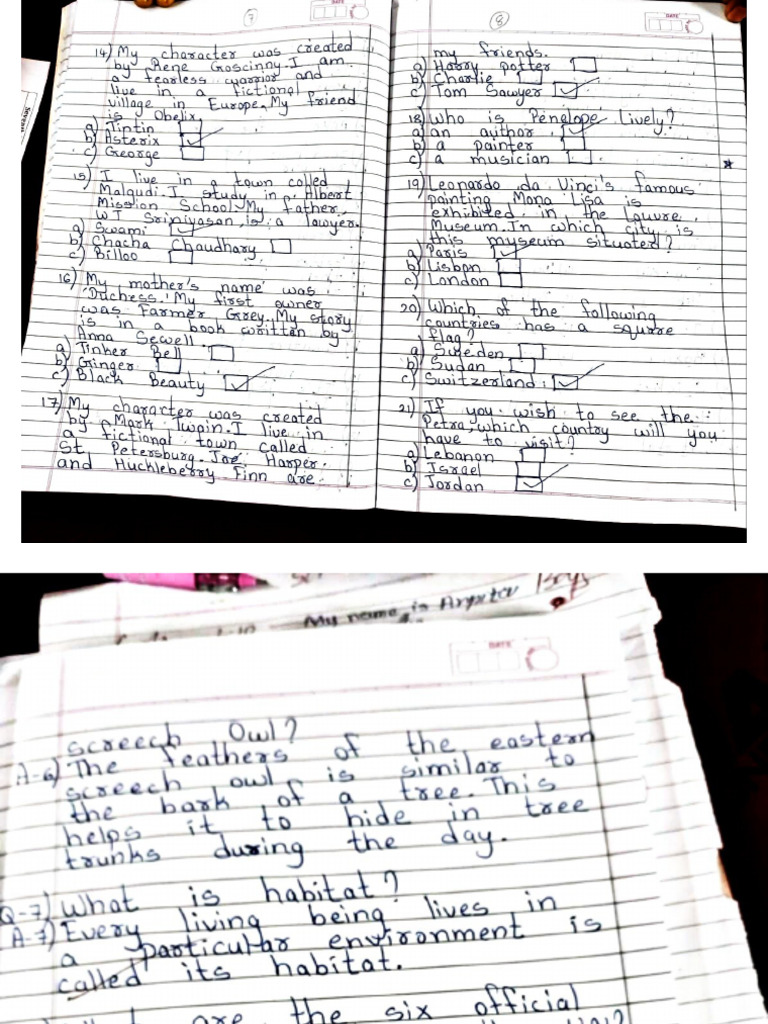 7
14) My character was created
by Rene Goscinny. I am
a fearless warrior and
live in a fictional
village in Europe. My friend
is Obelix.
a) Tintin
b) Asterix
c) George
15) I live in a town called
Malgudi. I study in Albert
Mission School. My father,
W.T Srinivasan, is a lawyer.
a) Swami
b) Chacha Chaudhary
c) Billoo
16) My mother's name was
'Duchess.' My first owner
was Farmer Grey. My story
is in a book written by
Anna Sewell.
a) Tinker Bell
b) Ginger
c) Black Beauty
17) My character was created
by Mark Twain. I live in
a fictional town called
St. Petersburg. Joe Harper
and Huckleberry Finn are
DATE
8
my friends.
a) Harry potter
b) Charlie
c) Tom Sawyer
18) Who is Penelope Lively?
a) an author
b) a painter
c) a musician
19) Leonardo da Vinci's famous
painting Mona Lisa is
exhibited in the Louvre
Museum. In which city is
this museum situated?
a) Paris
b) Lisbon
c) London
20) Which of the following
countries has a square
flag?
a) Sweden
b) Sudan
c) Switzerland
21) If you wish to see the
Petra, which country will you
have to visit?
a) Lebanon
b) Israel
c) Jordan
DATE
My name is
DATE
screech Owl?
A-6) The feathers of the eastern
screech owl is similar to
the bark of a tree. This
helps it to hide in tree
trunks during the day.
Q-7) What is habitat?
A-7) Every living being lives in
a particular environment is
called its habitat.
are the six official